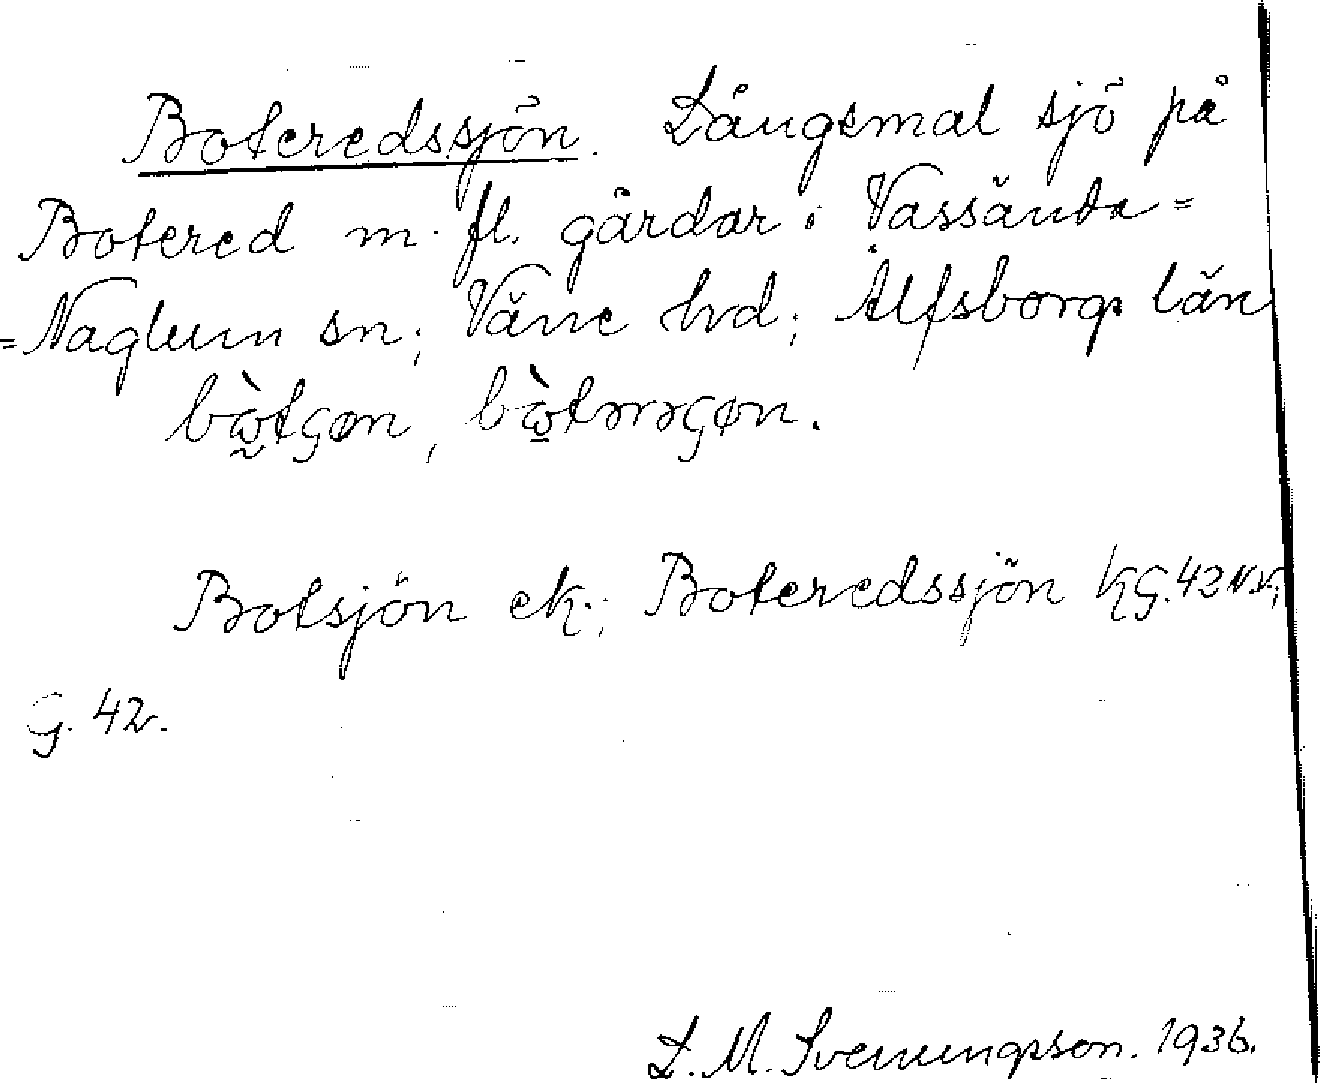 Boteredssjön. Långsmal sjö på
Botered m. fl. gårdar i Vassända=
=Naglum sn; Väne hd; Älfsborgs län
bὼtʂøn, bὼtərəʂøn.
Botsjön ek.; Boteredssjön KG.42NV.;
G. 42.
L. M. Svenungsson. 1936.